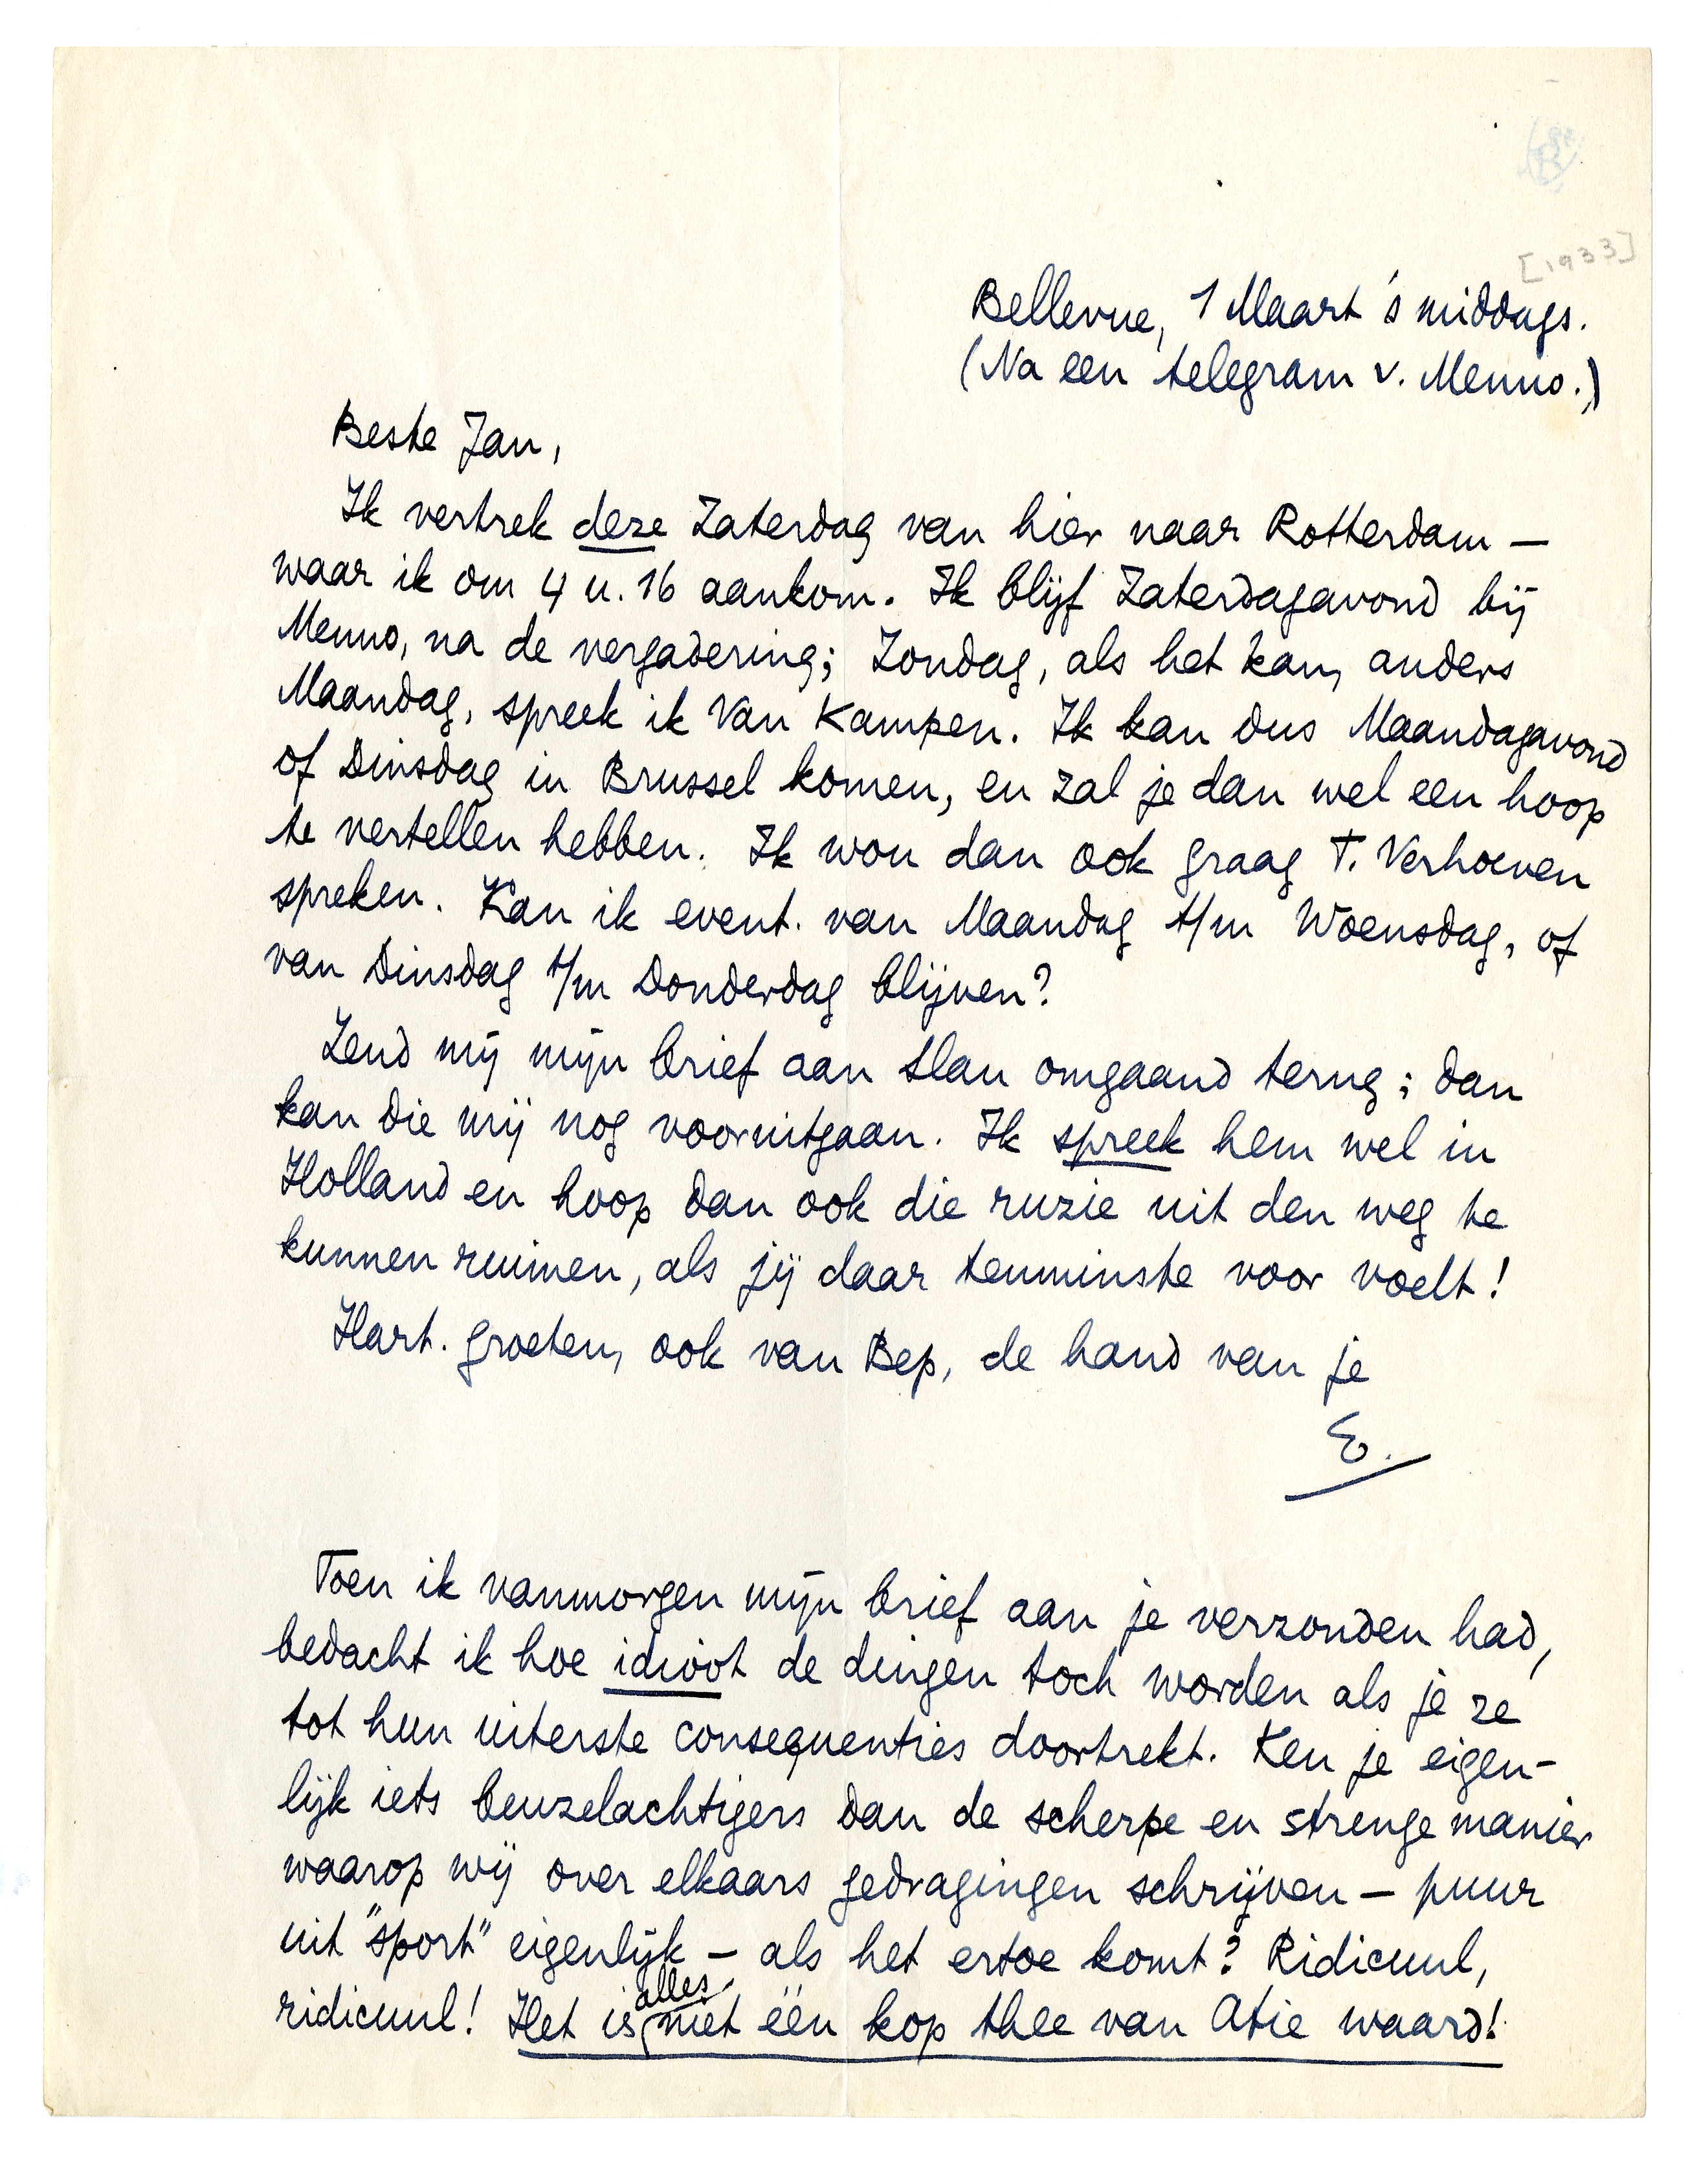 [1933]
Bellevue, 1 Maart 's middags.
(Na een telegram v. Menno.)
Beste Jan,
Ik vertrek deze Zaterdag van hier naar Rotterdam —
waar ik om 4 u. 16 aankom. Ik blijf Zaterdagavond bij
Menno, na de vergadering; Zondag, als het kan, anders
Maandag, spreek ik Van Kampen. Ik kan dus Maandagavond
of Dinsdag in Brussel komen, en zal je dan wel een hoop
te vertellen hebben. Ik wou dan ook graag T. Verhoeven
spreken. Kan ik event. van Maandag t/m Woensdag, of
van Dinsdag t/m Donderdag blijven?
Zend mij mijn brief aan Slau omgaand terug; dan
kan die mij nog vooruitgaan. Ik spreek hem wel in
Holland en hoop dan ook die ruzie uit den weg te
kunnen ruimen, als jij daar tenminste voor voelt!
Hart. groeten, ook van Bep, de hand van je
E.
Toen ik vanmorgen mijn brief aan je verzonden had,
bedacht ik hoe idioot de dingen toch worden als je ze
tot hun uiterste consequenties doortrekt. Ken je eigen-
lijk iets beuzelachtigers dan de scherpe en strenge manier
waarop wij over elkaars gedragingen schrijven — puur
uit "sport" eigenlijk — als het ertoe komt? Ridicuul,
ridicuul! Het is alles niet één kop thee van Atie waard!